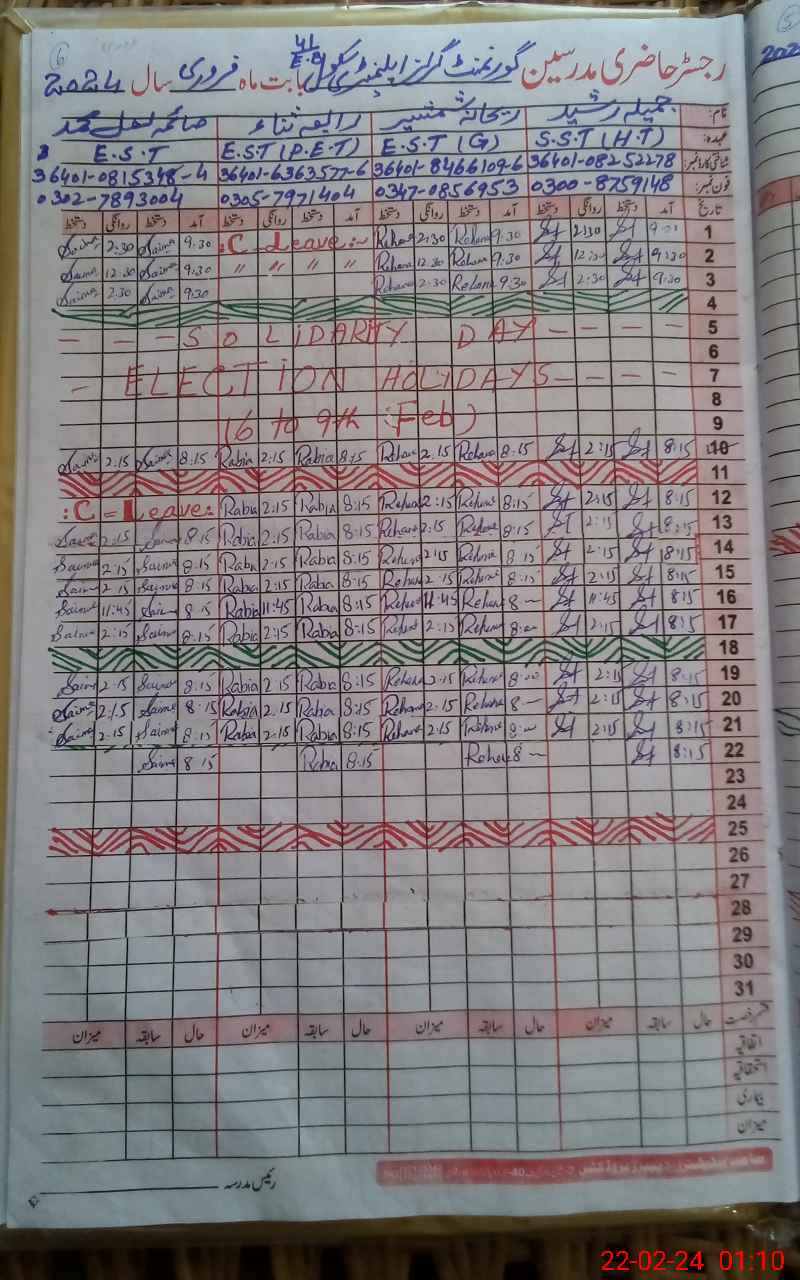 رجسٹر حاضری مدرسین گورنمنٹ گرلز ایلیمنٹری سکول 41 E.B بابت ماہ فروری سال 2024
نام: جمیلہ رشید ریحانہ شمشیر رابعہ ثناء
عہدہ: S.S.T (H.T) E.S.T (G) E.S.T (P.E.T) E.S.T
شناختی کارڈ نمبر: 36401-08252278 36401-8466109-6 36401-6363577-6 36401-0815348-4
فون نمبر: 0300-8759148 0347-0856953 0305-7971404 0302-7893004
تاریخ آمد دستخط روانگی دستخط آمد دستخط روانگی دستخط آمد دستخط روانگی دستخط آمد دستخط روانگی دستخط
Saima 2:30 Saima 9:30 :C-Leave:- Rehana 2:30 Rehana 9:30 2:30 1
Saima 12:30 Saima 9:30 " " " " Rehana 12:30 Rehana 9:30 12:30 9:30 2
Saima 2:30 Saima 9:30 Rehana 2:30 Rehana 9:30 2:30 9:30 3
4
- - - SOLIDARITY DAY - - - - 5
6
- ELECTION HOLIDAYS - - - - 7
8
(6 to 9th :Feb) 9
Saima 2:15 Saima 8:15 Rabia 2:15 Rabia 8:15 Rehana 2:15 Rehana 8:15 2:15 8:15 10
11
:C=Leave: Rabia 2:15 Rabia 8:15 Rehana 2:15 Rehana 8:15 2:15 8:15 12
Saima 2:15 Saima 8:15 Rabia 2:15 Rabia 8:15 Rehana 2:15 Rehana 8:15 2:15 8:15 13
Saima 2:15 Saima 8:15 Rabia 2:15 Rabia 8:15 Rehana 2:15 Rehana 8:15 2:15 8:15 14
Saima 2:15 Saima 8:15 Rabia 2:15 Rabia 8:15 Rehana 2:15 Rehana 8:15 2:15 8:15 15
Saima 11:45 Saima 8:15 Rabia 11:45 Rabia 8:15 Rehana 11:45 Rehana 8- 11:45 8:15 16
Saima 2:15 Saima 8:15 Rabia 2:15 Rabia 8:15 Rehana 2:15 Rehana 8:00 2:15 8:15 17
18
Saima 2:15 Saima 8:15 Rabia 2:15 Rabia 8:15 Rehana 2:15 Rehana 8:00 2:15 8:15 19
Saima 2:15 Saima 8:15 Rabia 2:15 Rabia 8:15 Rehana 2:15 Rehana 8- 2:15 8:15 20
Saima 2:15 Saima 8:15 Rabia 2:15 Rabia 8:15 Rehana 2:15 Rehana 8:00 2:15 8:15 21
Saima 8:15 Rabia 8:15 Rehana 8- 8:15 22
23
24
25
26
27
28
29
30
31
قسم رخصت حال سابقہ میزان حال سابقہ میزان حال سابقہ میزان حال سابقہ میزان
اتفاقیہ
استحقاقیہ
بیماری
میزان
رئیس مدرسہ
22-02-24 01:10